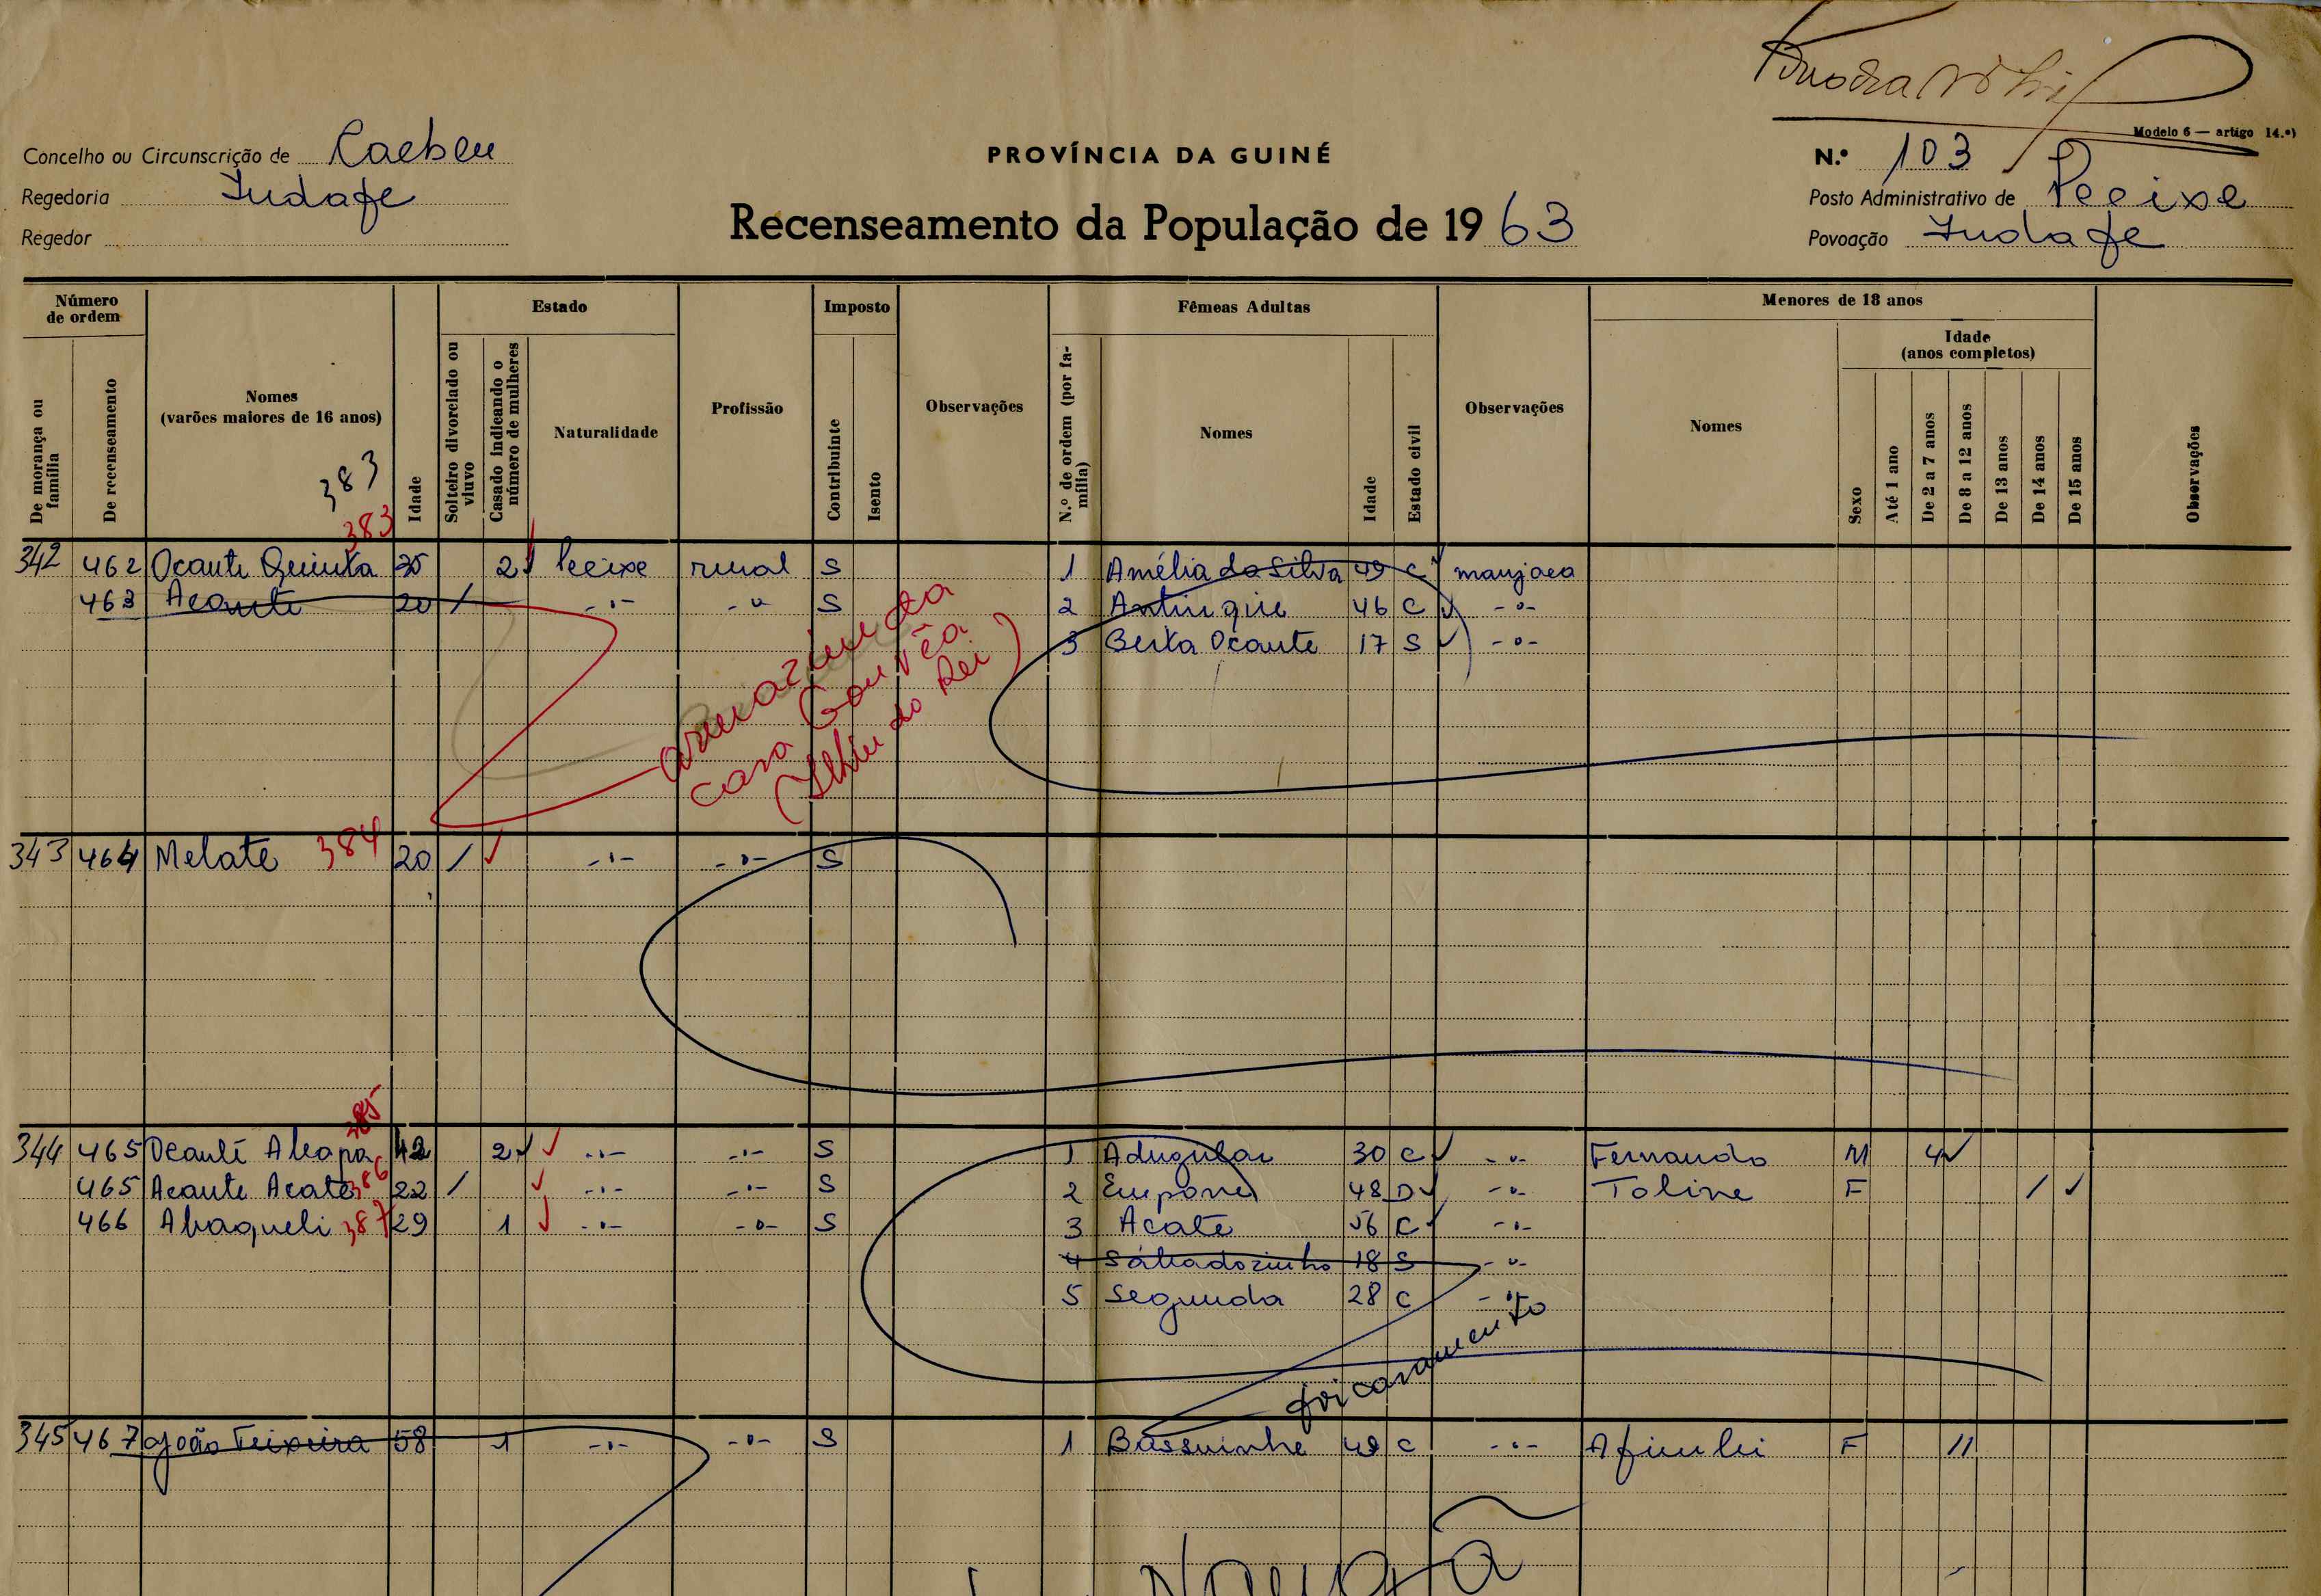 Modelo 6 — artigo 14.º)
Concelho ou Circunscrição de
PROVÍNCIA DA GUINÉ
N.º 103
Regedoria
Posto Administrativo de Pecixe
Regedor
Recenseamento da População de 1963
Povoação
Número de ordem
Estado
Imposto
Fêmeas Adultas
Menores de 18 anos
Idade
(anos completos)
De morança ou família
De recenseamento
Nomes
(varões maiores de 16 anos)
Idade
Solteiro divorciado ou viuvo
Casado indicando o número de mulheres
Naturalidade
Profissão
Contribuinte
Isento
Observações
N.º de ordem (por família)
Nomes
Idade
Estado civil
Observações
Nomes
Sexo
Até 1 ano
De 2 a 7 anos
De 8 a 12 anos
De 13 anos
De 14 anos
De 15 anos
Observações
383
383
342 462 Ocante Quinta 2 Pecixe rural S 1 Amélia da Silva 49 C manjaca
463 Acante 20 / -"- -"- S 2 46 C -"-
3 Berta Ocante 17 S -"-
casa Gouvêa
do Rei)
343 464 Melate 384 20 / -"- -"- S
385
344 465 42 2 -"- -"- S 1 30 C -"- Fernando M 4
465 Acante Acate 386 22 / -"- -"- S 2 48 D -"- Toline F /
466 387 29 1 -"- -"- S 3 Acate 56 C -"-
4 Sábadozinho 18 S -"-
5 Segunda 28 C -"-
foi casamento
345 467 João Teixeira 58 1 -"- -"- S 1 49 C -"- F 11